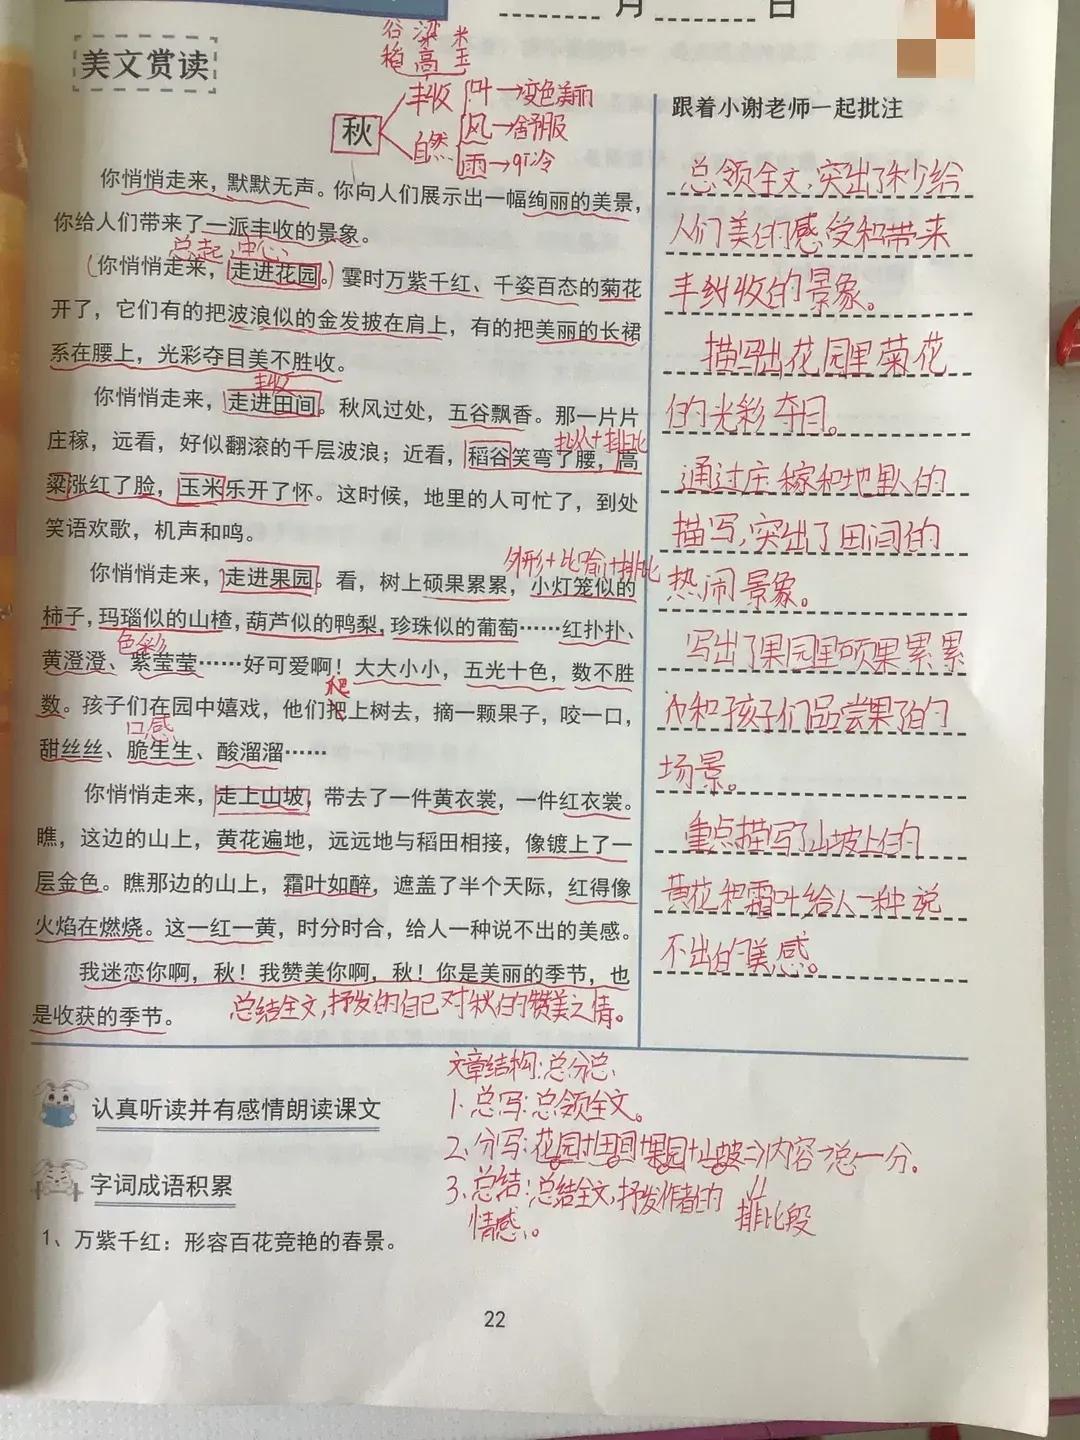 月 日
美文赏读
谷 粱 米
稻 高 玉
丰收 叶→变色美丽
秋 风→舒服
自然 雨→冷
跟着小谢老师一起批注
你悄悄走来，默默无声。你向人们展示出一幅绚丽的美景，
你给人们带来了一派丰收的景象。
总起 中心
（你悄悄走来，走进花园。）霎时万紫千红、千姿百态的菊花
开了，它们有的把波浪似的金发披在肩上，有的把美丽的长裙
系在腰上，光彩夺目美不胜收。
丰收
你悄悄走来，走进田间。秋风过处，五谷飘香。那一片片
拟人+排比
庄稼，远看，好似翻滚的千层波浪；近看，稻谷笑弯了腰，高
粱涨红了脸，玉米乐开了怀。这时候，地里的人可忙了，到处
笑语欢歌，机声和鸣。
外形+比喻+排比
你悄悄走来，走进果园。看，树上硕果累累，小灯笼似的
柿子，玛瑙似的山楂，葫芦似的鸭梨，珍珠似的葡萄……红扑扑、
色彩
黄澄澄、紫莹莹……好可爱啊！大大小小，五光十色，数不胜
爬
数。孩子们在园中嬉戏，他们把上树去，摘一颗果子，咬一口，
口感
甜丝丝、脆生生、酸溜溜……
你悄悄走来，走上山坡，带去了一件黄衣裳，一件红衣裳。
瞧，这边的山上，黄花遍地，远远地与稻田相接，像镀上了一
层金色。瞧那边的山上，霜叶如醉，遮盖了半个天际，红得像
火焰在燃烧。这一红一黄，时分时合，给人一种说不出的美感。
我迷恋你啊，秋！我赞美你啊，秋！你是美丽的季节，也
是收获的季节。
总结全文，抒发的自己对秋的赞美之情。
总领全文，突出了秋给
人们美的感受和带来
丰收的景象。
描写出花园里菊花
的光彩夺目。
通过庄稼和地里人的
描写，突出了田间的
热闹景象。
写出了果园里硕果累累
和孩子们品尝果子的
场景。
重点描写了山坡上的
黄花和霜叶给人一种说
不出的美感。
文章结构：总分总
1、总写：总领全文。
2、分写：花园+田间+果园+山坡⇒内容→总一分。
3、总结：总结全文，抒发作者的
情感。
排比段
认真听读并有感情朗读课文
字词成语积累
1、万紫千红：形容百花竞艳的春景。
22